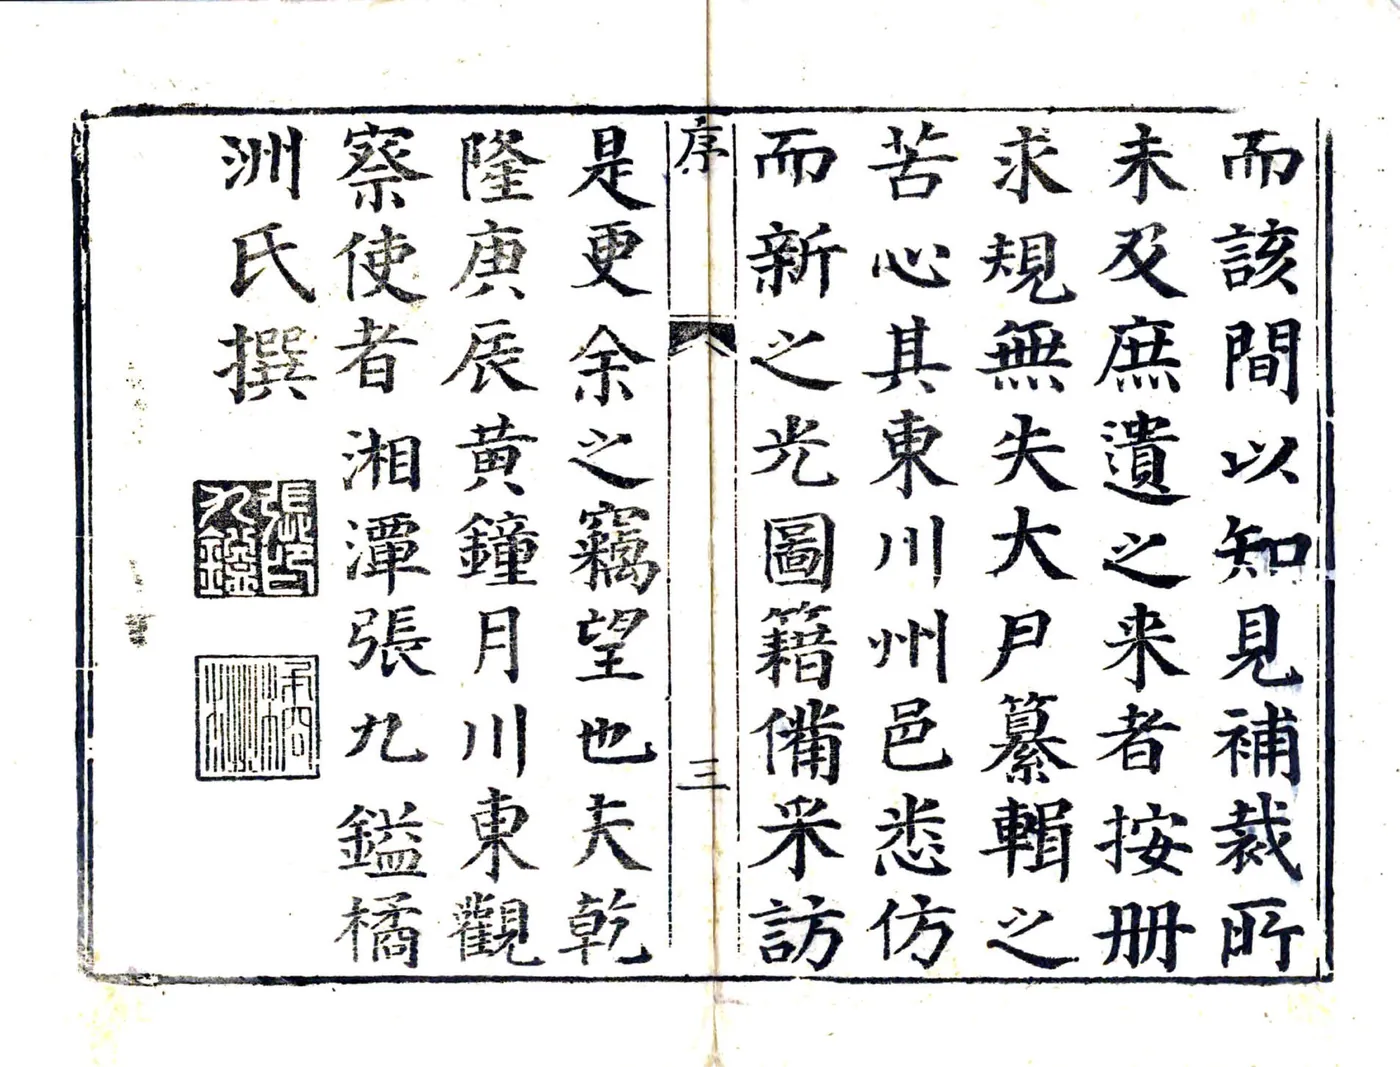 而該間以知見補裁所
未及庶遺之来者按册
求規無失大尹纂輯之
苦心其東川州邑悉仿
而新之光圖籍備采訪
序
三
是更余之竊望也夫乾
隆庚辰黄鐘月川東觀
察使者湘潭張九鎰橘
洲氏撰
張九鎰印